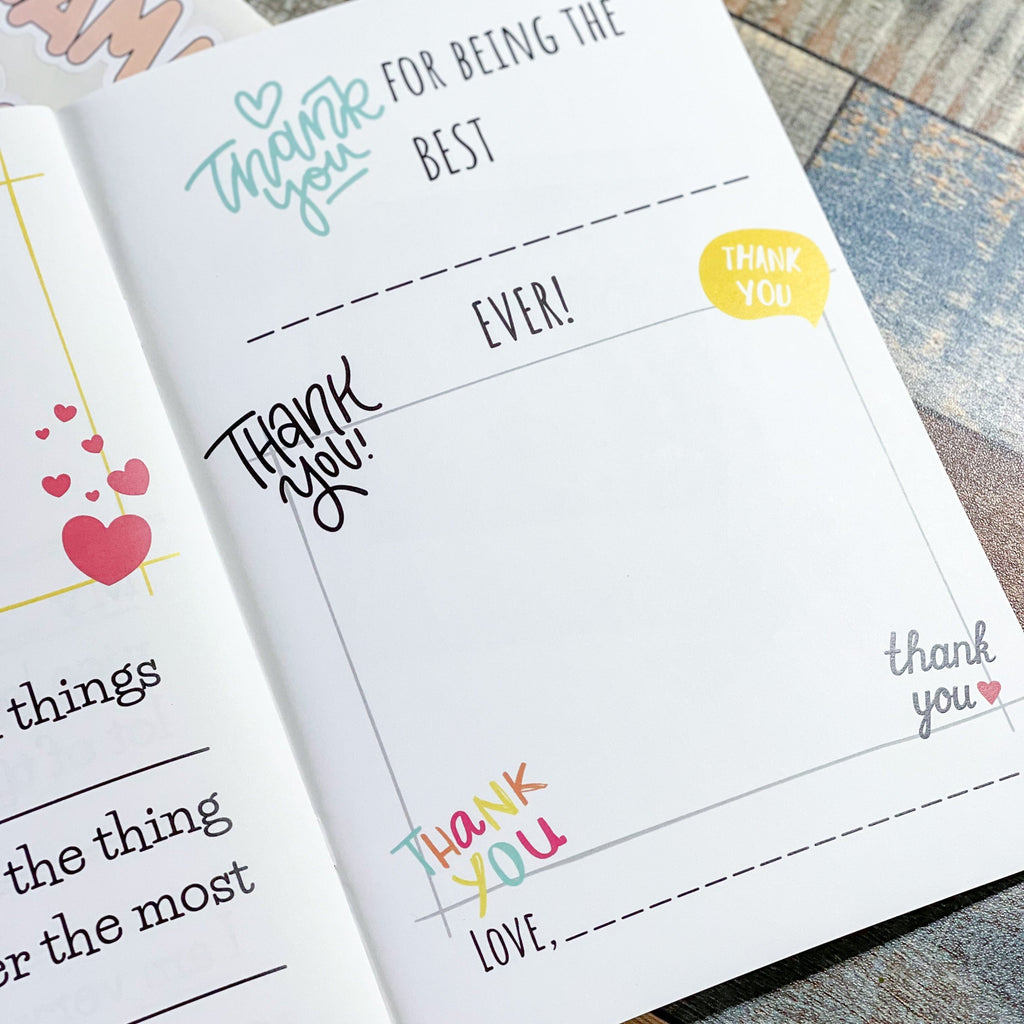 AM
things
the thing
the most
Thank
you
FOR BEING THE
BEST
EVER!
THANK
YOU
THANK
YOU!
thank
you
THANK
YOU
LOVE,